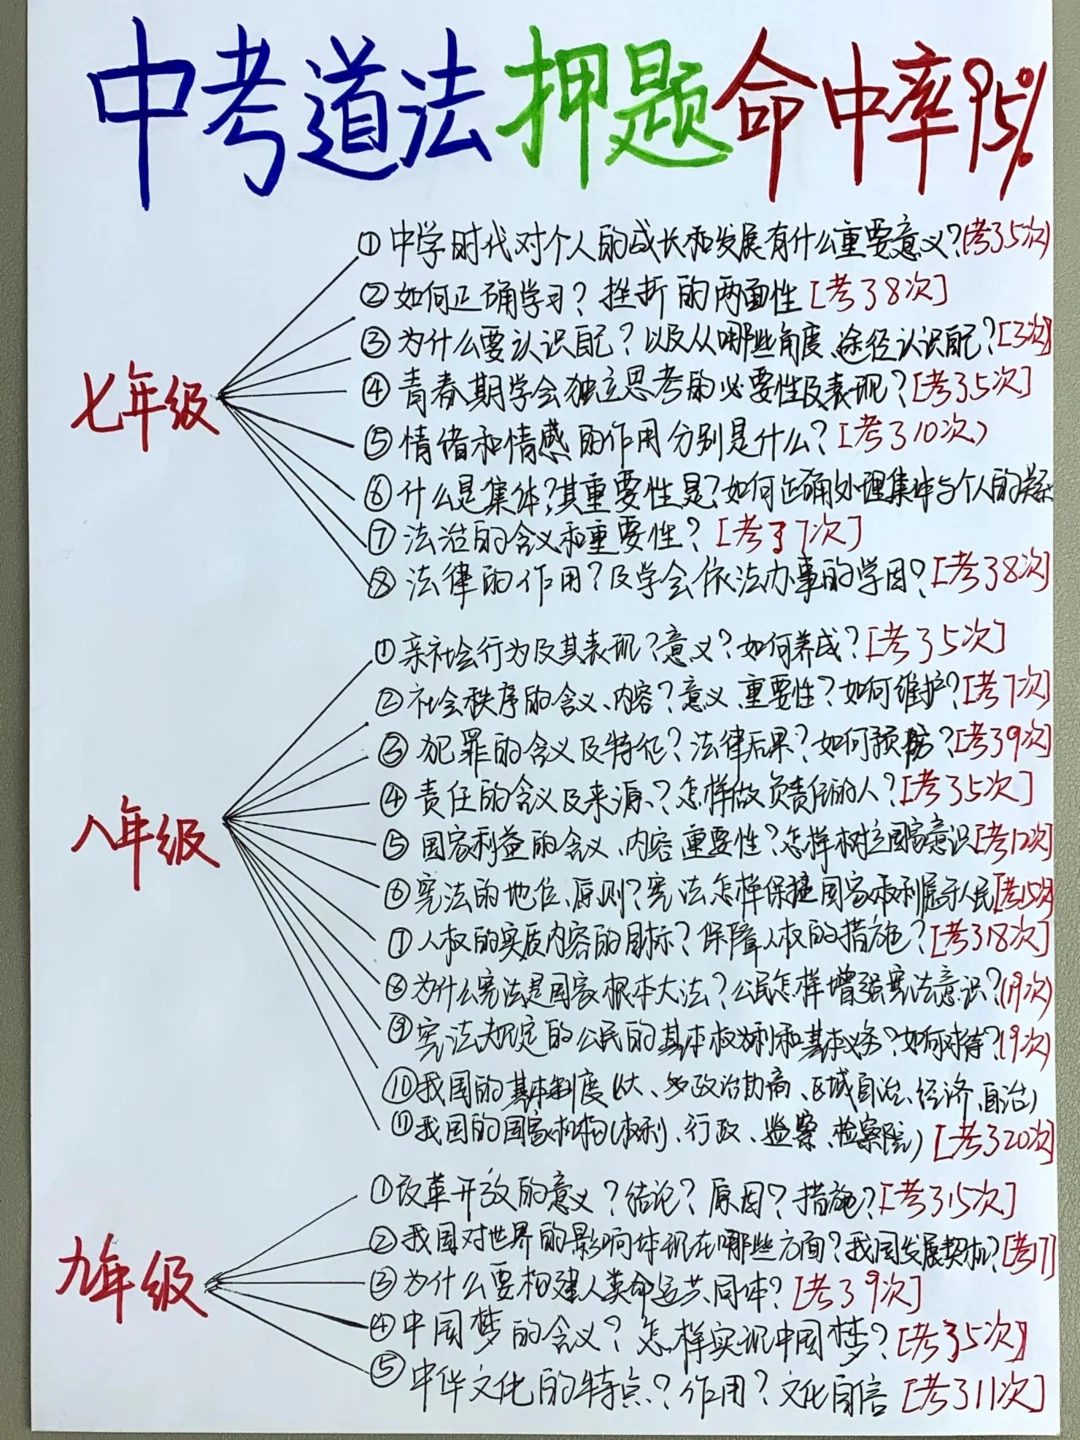 中考道法押题命中率95%
七年级
①中学时代对个人的成长和发展有什么重要意义?(考了5次)
②如何正确学习?挫折的两面性[考了8次]
③为什么要认识自己?以及从哪些角度、途径认识自己?[3次]
④青春期学会独立思考的必要性及表现?[考了5次]
⑤情绪和情感的作用分别是什么?[考了10次)
⑥什么是集体?其重要性是?如何正确处理集体与个人的关系
⑦法治的含义和重要性?[考了7次]
⑧法律的作用?及学会依法办事的学因?[考了8次]
八年级
①亲社会行为及其表现?意义?如何养成?[考了5次]
②社会秩序的含义、内容?意义、重要性?如何维护?[考7次]
③犯罪的含义及特征?法律后果?如何预防?[考了9次]
④责任的含义及来源?怎样做负责任的人?[考了5次]
⑤国家利益的含义、内容重要性?怎样树立国家意识[考12次]
⑥宪法的地位、原则?宪法怎样保障国家权利属于人民[考15次]
⑦人权的实质内容的目标?保障人权的措施?[考了18次]
⑧为什么宪法是国家根本大法?公民怎样增强宪法意识?(19次)
⑨宪法规定的公民的基本权利和基本义务?如何对待?(9次)
⑩我国的基本制度(人大、多政治协商、区域自治、经济、自治)
⑪我国的国家机构(权利、行政、监察、检察院)[考了20次]
九年级
①改革开放的意义?结论?原因?措施?[考了15次]
②我国对世界的影响体现在哪些方面?我国发展契机?[考17]
③为什么要构建人类命运共同体?[考了9次]
④中国梦的含义?怎样实现中国梦?[考了5次]
⑤中华文化的特点?作用?文化自信[考了11次]